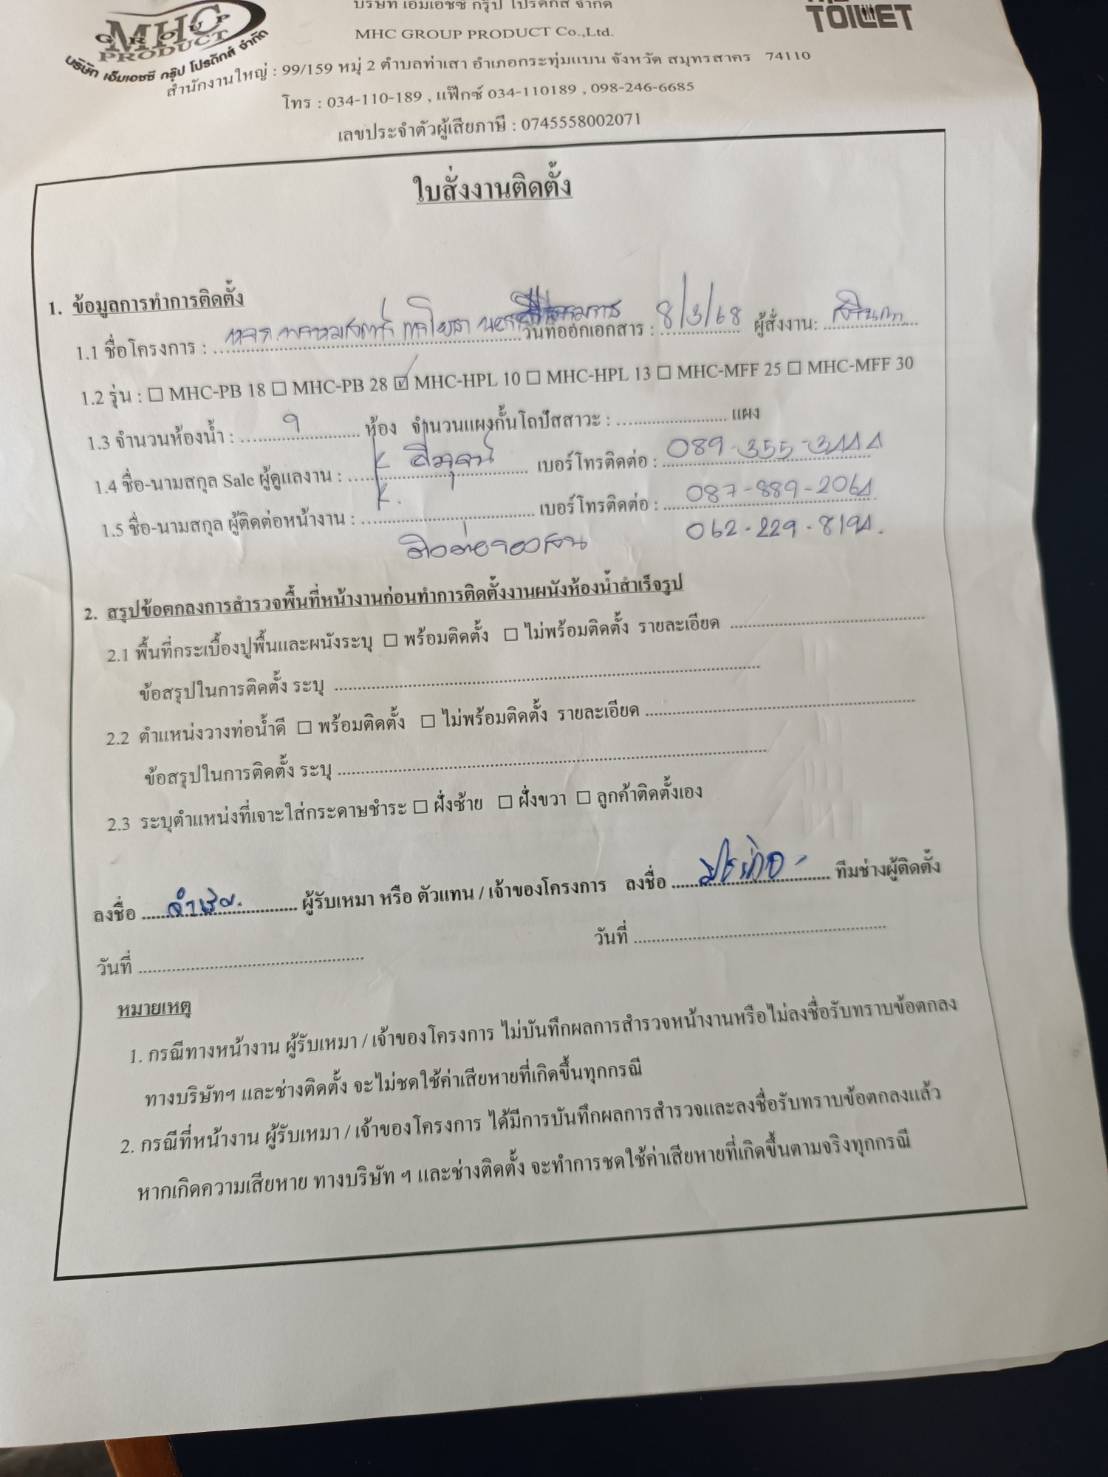 MHC
GROUP
PRODUCT
บริษัท เอ็มเอชซี กรุ๊ป โปรดักส์ จำกัด
TOILET
บริษัท เอ็มเอชซี กรุ๊ป โปรดักส์ จำกัด
MHC GROUP PRODUCT Co.,Ltd.
สำนักงานใหญ่ : 99/159 หมู่ 2 ตำบลท่าเสา อำเภอกระทุ่มแบน จังหวัด สมุทรสาคร 74110
โทร : 034-110-189 , แฟ็กซ์ 034-110189 , 098-246-6685
เลขประจำตัวผู้เสียภาษี : 0745558002071
ใบสั่งงานติดตั้ง
1. ข้อมูลการทำการติดตั้ง
1.1 ชื่อโครงการ : วันที่ออกเอกสาร : 8/3/68 ผู้สั่งงาน:
1.2 รุ่น : ☐ MHC-PB 18 ☐ MHC-PB 28 ☑ MHC-HPL 10 ☐ MHC-HPL 13 ☐ MHC-MFF 25 ☐ MHC-MFF 30
1.3 จำนวนห้องน้ำ : 9 ห้อง จำนวนแผงกั้นโถปัสสาวะ : แผง
1.4 ชื่อ-นามสกุล Sale ผู้ดูแลงาน : เบอร์โทรติดต่อ : 089-355-3444
1.5 ชื่อ-นามสกุล ผู้ติดต่อหน้างาน : K. เบอร์โทรติดต่อ : 087-889-2064
062-229-8194.
2. สรุปข้อตกลงการสำรวจพื้นที่หน้างานก่อนทำการติดตั้งงานผนังห้องน้ำสำเร็จรูป
2.1 พื้นที่กระเบื้องปูพื้นและผนังระบุ ☐ พร้อมติดตั้ง ☐ ไม่พร้อมติดตั้ง รายละเอียด
ข้อสรุปในการติดตั้ง ระบุ
2.2 ตำแหน่งวางท่อน้ำดี ☐ พร้อมติดตั้ง ☐ ไม่พร้อมติดตั้ง รายละเอียด
ข้อสรุปในการติดตั้ง ระบุ
2.3 ระบุตำแหน่งที่เจาะใส่กระดาษชำระ ☐ ฝั่งซ้าย ☐ ฝั่งขวา ☐ ลูกค้าติดตั้งเอง
ลงชื่อ ผู้รับเหมา หรือ ตัวแทน / เจ้าของโครงการ ลงชื่อ ทีมช่างผู้ติดตั้ง
วันที่ วันที่
หมายเหตุ
1. กรณีทางหน้างาน ผู้รับเหมา / เจ้าของโครงการ ไม่บันทึกผลการสำรวจหน้างานหรือไม่ลงชื่อรับทราบข้อตกลง
ทางบริษัทฯ และช่างติดตั้ง จะไม่ชดใช้ค่าเสียหายที่เกิดขึ้นทุกกรณี
2. กรณีที่หน้างาน ผู้รับเหมา / เจ้าของโครงการ ได้มีการบันทึกผลการสำรวจและลงชื่อรับทราบข้อตกลงแล้ว
หากเกิดความเสียหาย ทางบริษัท ฯ และช่างติดตั้ง จะทำการชดใช้ค่าเสียหายที่เกิดขึ้นตามจริงทุกกรณี